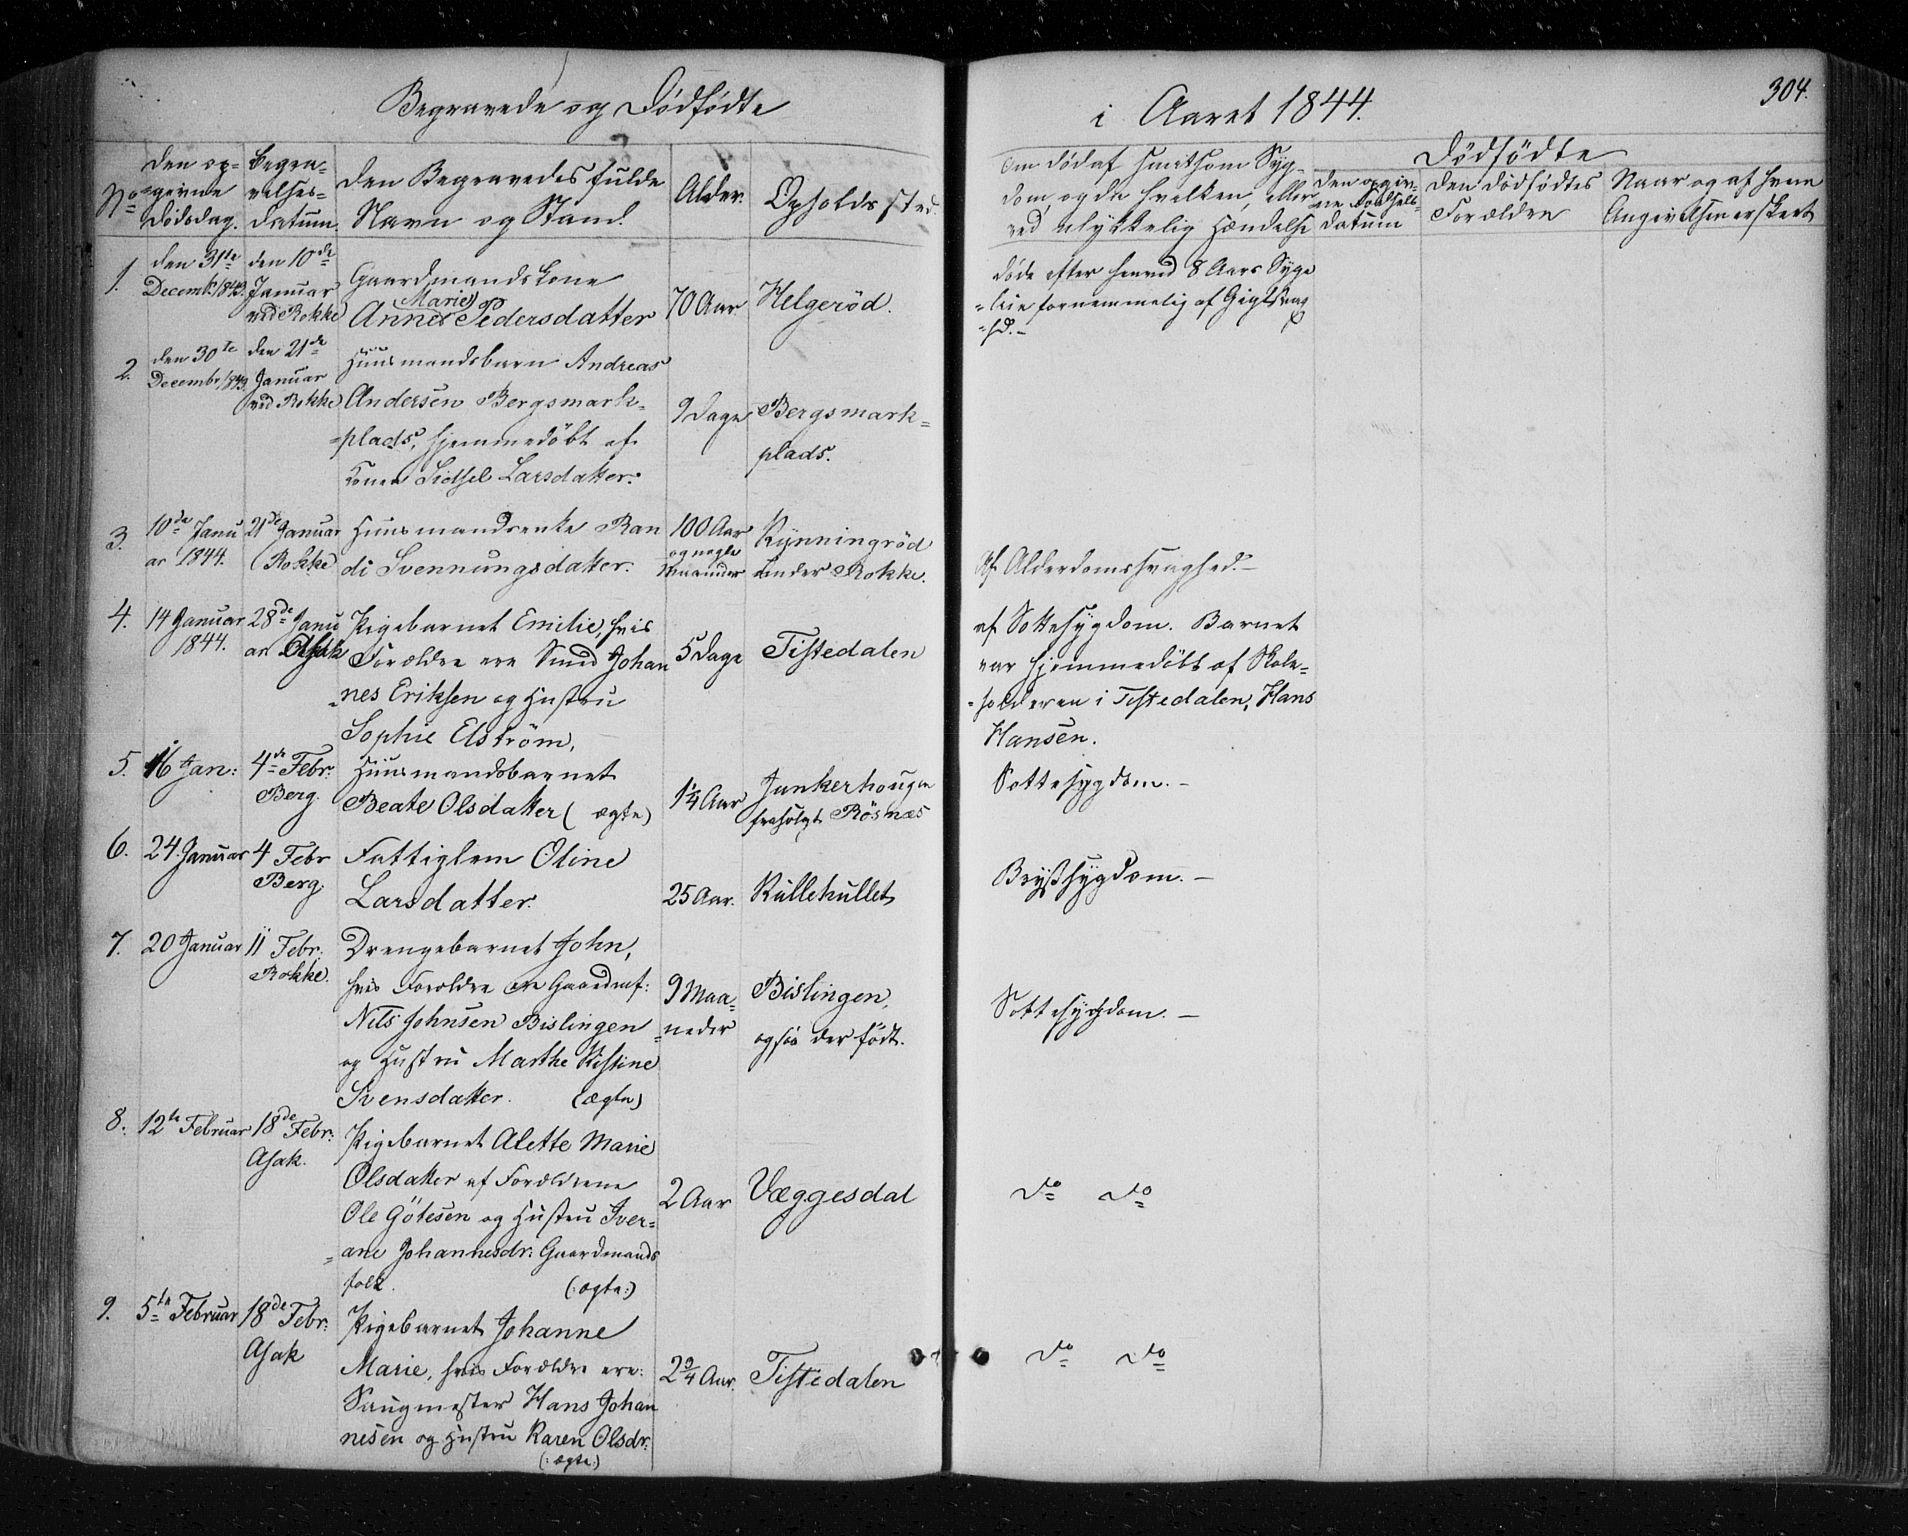 Begravede og Dødfødte
i Aaret 1844.
304.
No
Den op=
=givne
Dødsdag.
Begra=
velses=
Datum
Den Begravedes fulde
Navn og Stand.
Alder.
Opholdssted.
Om död af smitsom Syg=
dom og da hvilken, eller
ved ulykkelig Hændelse
Dødfødte
Den opgiv=
ne Födsels=
Datum
Den Dödfödtes
Forældre
Naar og af hvem
Angivelsen er skeet
1.
den 31te
Decemb. 1843.
den 10de
Januar
ved Rokke
Gaardmandskone
(Marie)
Anne Pedersdatter
70 Aar
Helgeröd.
döde efter henved 8 Aars Syge
=leie fornemmelig af Gigtsvag
=hd.-
2.
den 30te
Decembr 1843.
den 21de
Januar
ved Rokke
Huusmandsbarn Andreas
Andersen Bergsmark=
=plads, hjemmedöbt af
Konen Sidsel Larsdatter.
9 Dage
Bergsmark=
plads.
3.
10de Janu
ar 1844.
21de Januar
(Rokke)
Huusmandsenke Ran
di Svennungsdatter.
100 Aar
og nogle
Maaneder
Rynningröd
under Rokke.
Af Alderdomssvaghed.-
4.
14 Januar
1844.
28de Janu
ar Asak
Pigebarnet Emilie, hvis
Forældre ere Smed Johan
=nes Eriksen og Hustru
Sophie Elström.
5 Dage
Tistedalen
af Sottesygdom. Barnet
var hjemmedöbt af Skole=
=holderen i Tistedalen, Hans
Hansen.
5.
16 Jan:
4de Febr.
Berg.
Huusmandsbarnet
Beate Olsdatter (ægte)
1¼ Aar
Junkerhougen
frasolgt Rösnæs
Sottesygdom.-
6.
24. Januar
4 Febr
Berg.
Fattiglem Oline
Larsdatter.
25 Aar.
Kullehullet
Brystsygdom.-
7.
20 Januar
11 Febr.
Rokke.
Drengebarnet John,
hvis Forældre ere Gaardmf:
Nils Johnsen Bislingen
og Hustru Marthe Kistine
Svensdatter. (ægte)
9 Maa=
=neder
Bislingen,
ogsaa der födt.
Sottesygdom.-
8.
12te Februar
18de Febr:
Asak.
Pigebarnet Alette Marie
Olsdatter af Forældrene
Ole Götesen og Hustru Iver=
=ane Johannesdr: Gaardmands
folk. (:ægte:)
2 Aar
Væggesdal
do do
9.
5te Februar
18de Febr:
Asak
Pigebarnet Johanne
Marie, hvis Forældre ere:
Saugmester Hans Johan
nesen og Hustru Karen Olsdr:
(:ægte:)
2¾ Aar.
Tistedalen
do do